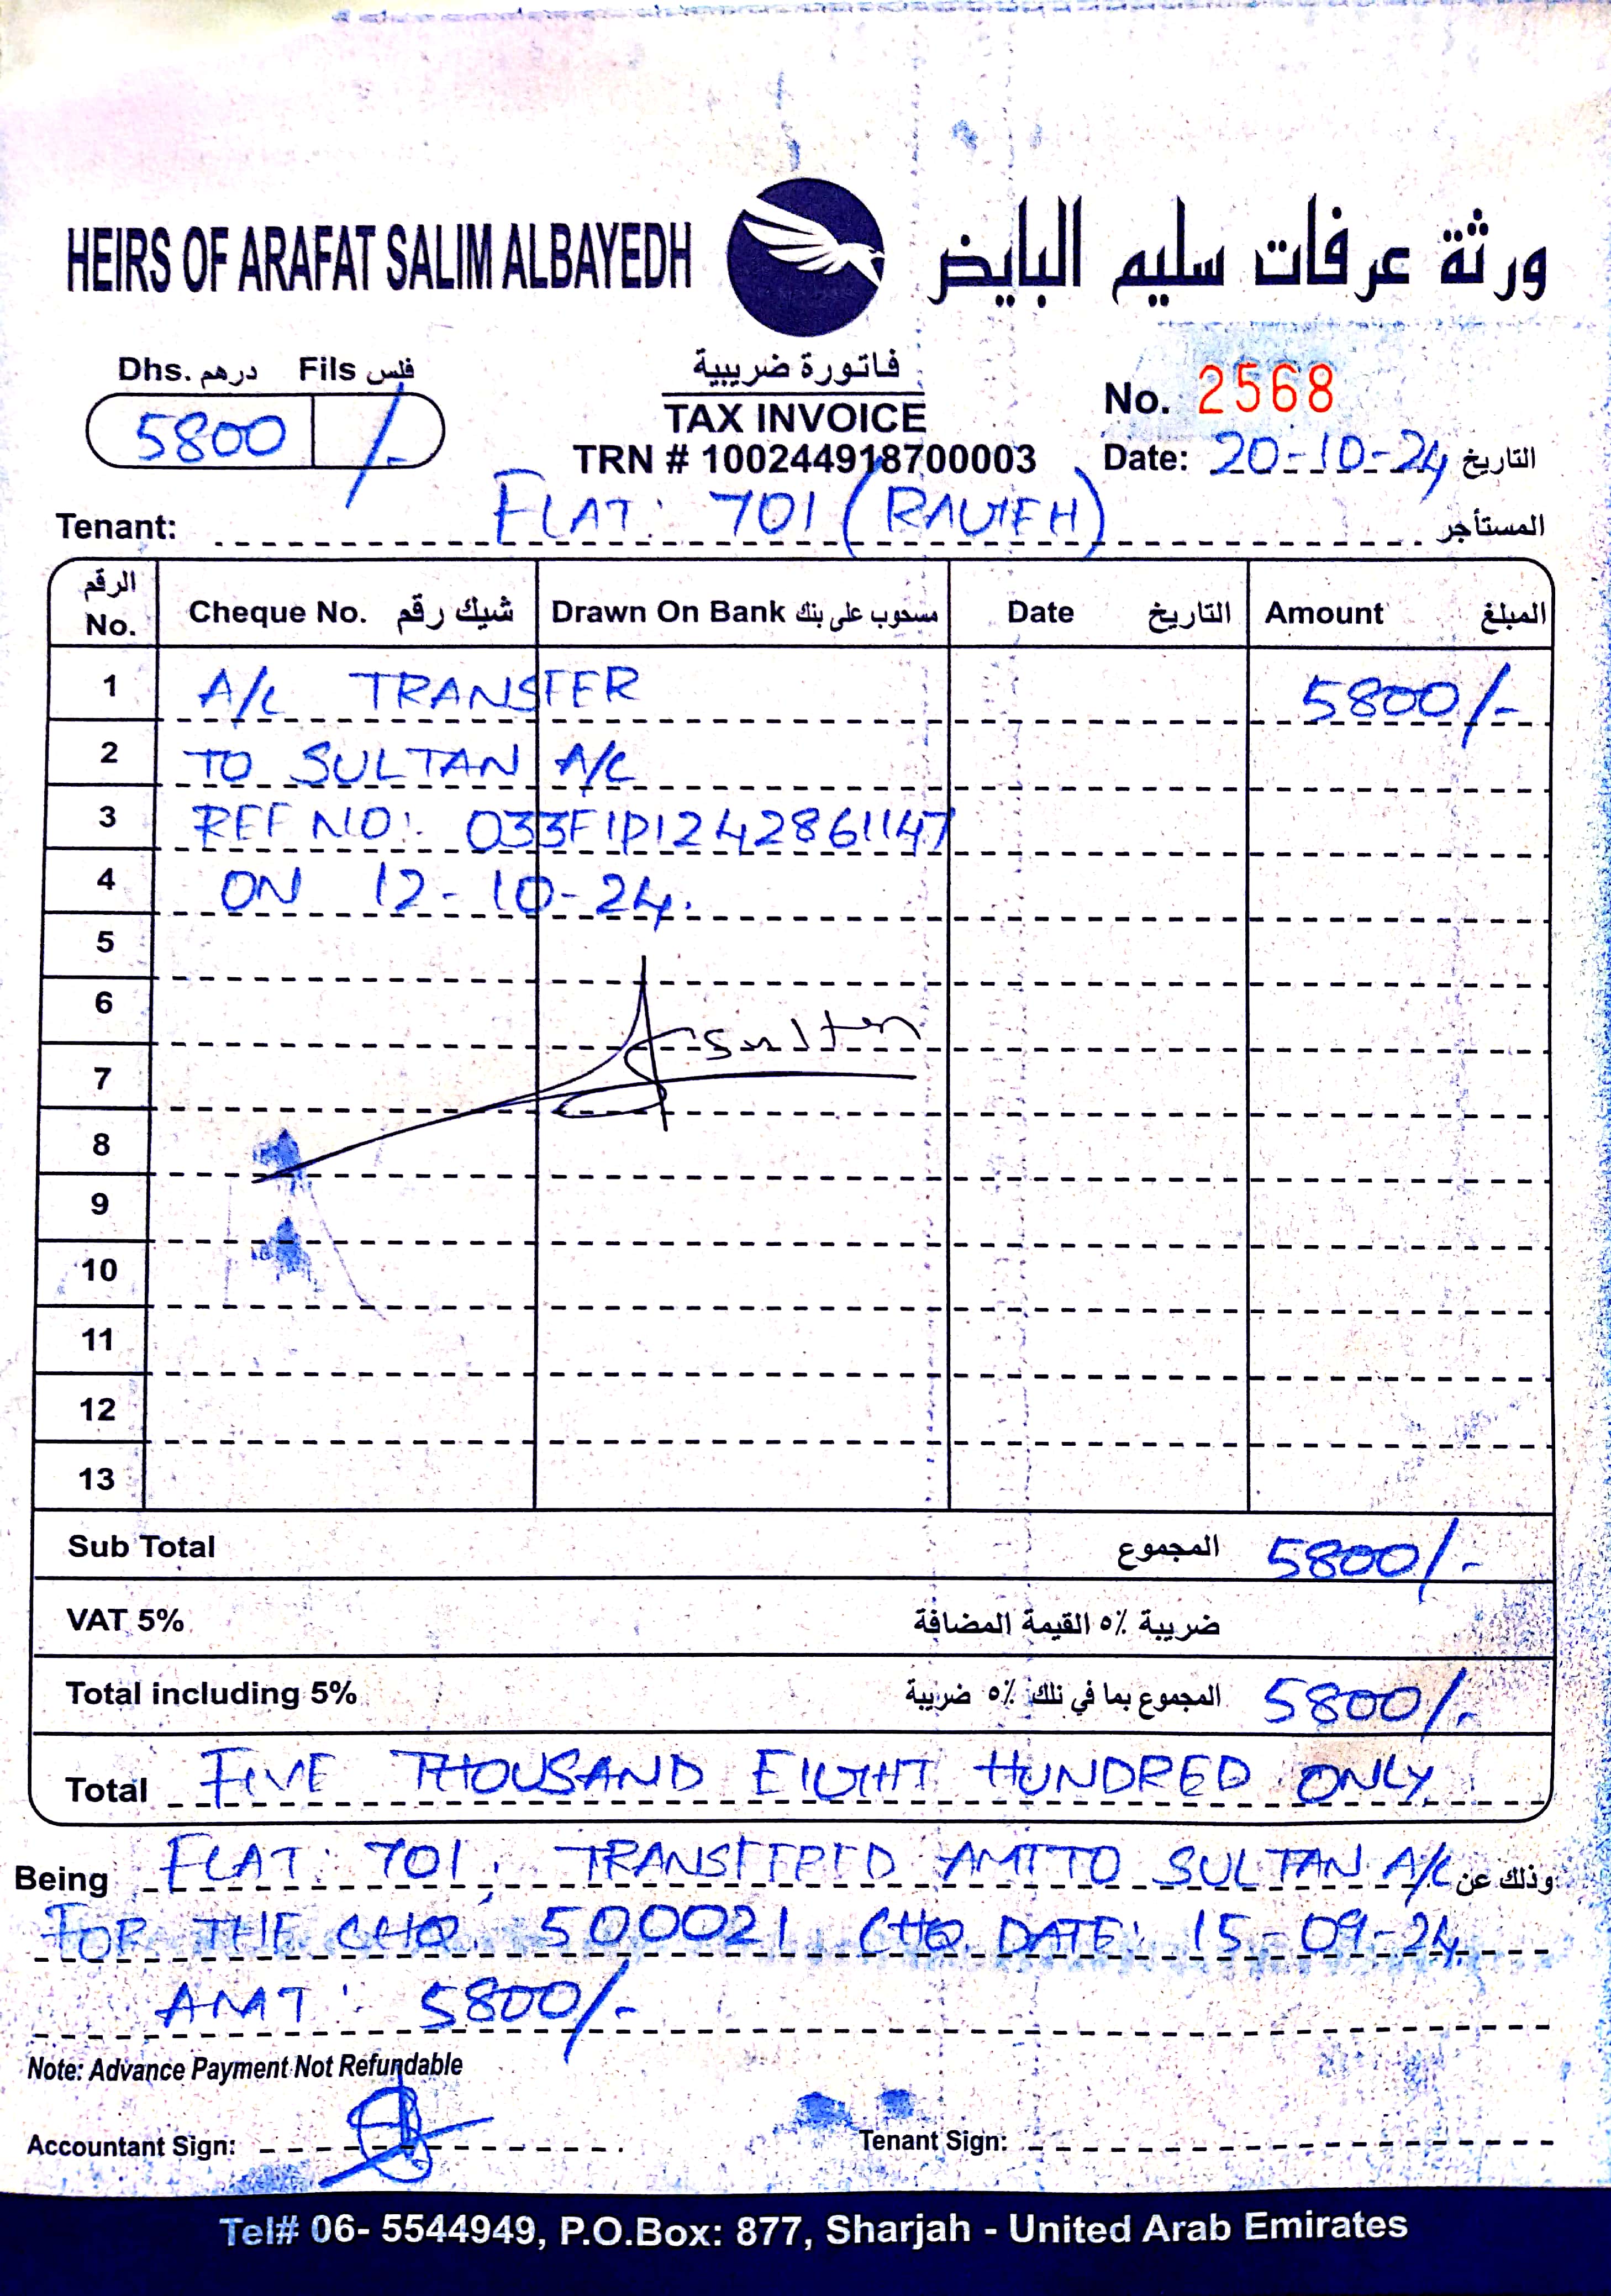 HEIRS OF ARAFAT SALIM ALBAYEDH ورثة عرفات سليم البايض
Dhs. درهم Fils فلس
5800 /-
فاتورة ضريبية
TAX INVOICE
TRN # 100244918700003
No. 2568
Date: 20-10-24 التاريخ
Tenant: FLAT: 701 (RAVIEH) المستأجر
الرقم No. Cheque No. شيك رقم Drawn On Bank مسحوب على بنك Date التاريخ Amount المبلغ
1 A/C TRANSFER 5800/-
2 TO SULTAN A/C
3 REF NO: 033F1D1242861147
4 ON 12-10-24.
5
6 Sultan
7
8
9
10
11
12
13
Sub Total المجموع 5800/-
VAT 5% ضريبة ٥٪ القيمة المضافة
Total including 5% المجموع بما في ذلك ٥٪ ضريبة 5800/-
Total FIVE THOUSAND EIGHT HUNDRED ONLY
Being FLAT: 701, TRANSFERED AMT TO SULTAN A/C وذلك عن
FOR THE CHQ. 500021 CHQ DATE: 15-09-24
AMT: 5800/-
Note: Advance Payment Not Refundable
Accountant Sign: Tenant Sign:
Tel# 06- 5544949, P.O.Box: 877, Sharjah - United Arab Emirates